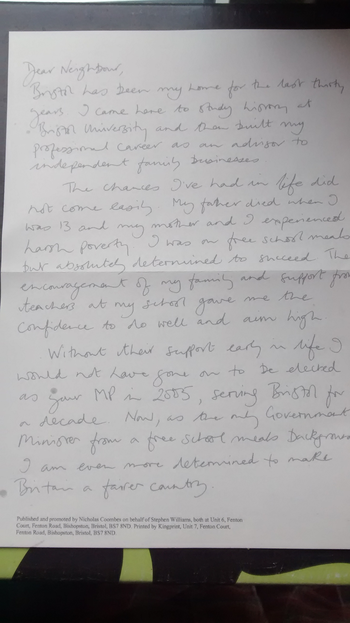 Dear Neighbour,
Bristol has been my home for the last thirty
years. I came here to study history at
Bristol University and then built my
professional career as an advisor to
independent family businesses
The chances I've had in life did
not come easily. My father died when I
was 13 and my mother and I experienced
harsh poverty. I was on free school meals
but absolutely determined to succeed. The
encouragement of my family and support from
teachers at my school gave me the
confidence to do well and aim high
Without their support early in life I
would not have gone on to be elected
as your MP in 2005, serving Bristol for
a decade. Now, as the only Government
Minister from a free school meals background
I am even more determined to make
Britain a fairer country.
Published and promoted by Nicholas Coombes on behalf of Stephen Williams, both at Unit 6, Fenton
Court, Fenton Road, Bishopston, Bristol, BS7 8ND. Printed by Kingprint, Unit 7, Fenton Court,
Fenton Road, Bishopston, Bristol, BS7 8ND.